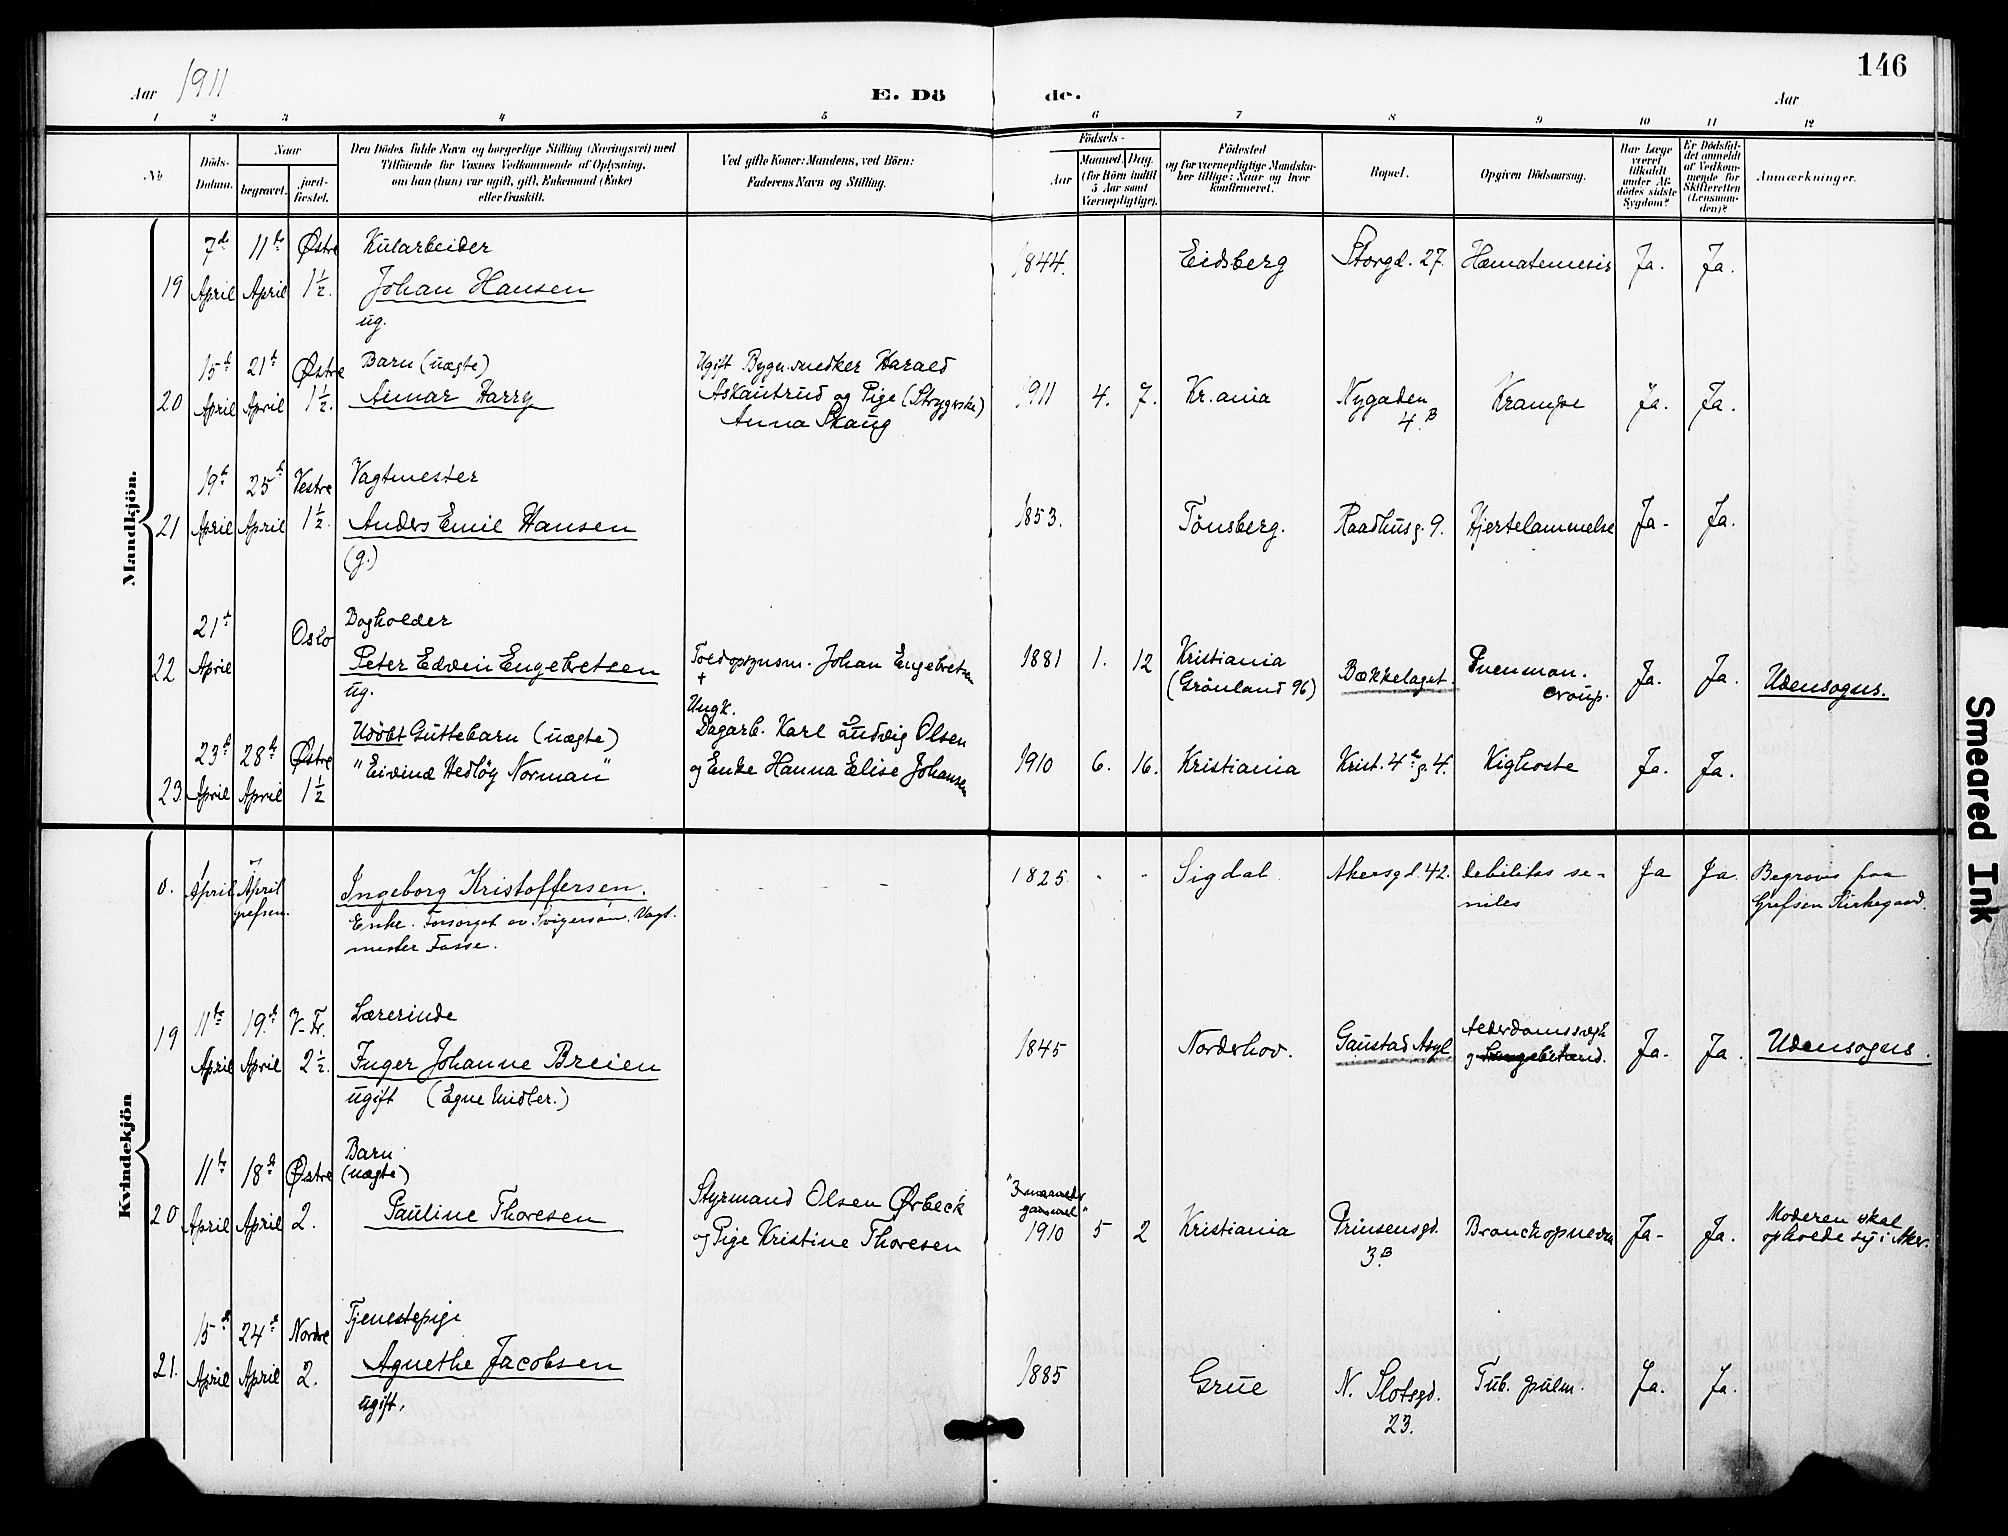 146
Aar 1911.
E. Dö de.
Aar
1 2 3 4 5 6 7 8 9 10 11 12
No
Döds-Datum.
Naar
begravet.
jord-fæstet.
Den Dödes fulde Navn og borgerlige Stilling (Næringsvei) med
Tilföiende for Voxnes Vedkommende af Oplysning,
om han (hun) var ugift, gift, Enkemand (Enke)
eller fraskilt.
Ved gifte Koner: Mandens, ved Börn:
Faderens Navn og Stilling.
Födsels-
Aar
Maaned. Dag.
(for Börn indtil
5 Aar samt
Værnepligtige).
Födested
og for værnepligtige Mandska-
ber tillige: Naar og hvor
konfirmeret.
Bopæl.
Opgiven Dödsaarsag.
Har Læge
været
tilkaldt
under Af-
dödes sidste
Sygdom?
Er Dödsfal-
det anmeldt
af Vedkom-
mende for
Skifteretten
(Lensman-
den)?
Anmærkninger.
Mandkjön.
19 7de April 11te April Østre 1½.
Kularbeider
Johan Hansen
ug.
1844. Eidsberg Storgd. 27. Hæmatemesis Ja. Ja.
20 15de April 21de April Østre 1½.
Barn (uægte)
Aimar Harry
Ugift Bygn.snedker Harald
Askautrud og Pige (Strygerske)
Anna Skaug
1911 4. 7. Kr.ania Nygaden 4.B Krampe Ja. Ja.
21 19de April 25de April Vestre 1½.
Vagtmester
Anders Emil Hansen
(g.)
1853. Tönsberg. Raadhusg. 9. Hjertelammelse Ja- Ja.
22 21de April Oslo
Bogholder
Peter Edvin Engebretsen
ug.
Toldopsynsm. Johan Engebretsen
+
1881 1. 12 Kristiania
(Grønland 96) Bækkelaget. Pnenmon.
croup. Ja. Ja. Udensogns.
23. 23de April 28de April Østre 1½
Udöbt Guttebarn (uægte)
"Eivind Hedlöy Norman"
Ungk.
Dagarb. Karl Ludvig Olsen
og Enke Hanna Elise Johansen
1910 6. 16. Kristiania Krist. 4des g. 4. Kighoste Ja. Ja.
Kvindekjön
0. 1 April 7 April
grefsen.
Ingeborg Kristoffersen.
Enke. Forsörget av Svigersön, Vagt-
mester Fosse.
- - -
1825 - - Sigdal Akersgd. 42. Debilitas se-
niles Ja Ja. Begraves paa
Grefsen Kirkegaard.
19 11te April 19de April V-Fr. 2½.
Lærerinde
Inger Johanne Breien
ugift (Egne Midler.)
1845 Norderhov. Gaustad Asyl Alderdomssvagh
g Lungebetænd. Ja- Ja. Udensogns.
20 11te April 18de April Østre 2.
Barn
(uægte)
Pauline Thoresen
Styrmand Olsen Ørbeck
og Pige Kristine Thoresen
"3 maaneder
gammel"
1910 5 2 Kristiania Prinsensgd.
3B Bronchopnevm Ja- Ja. Moderen skal
opholde sig i Aker.
21. 15de April 24de April Nordre 2.
Tjenestepige
Agnethe Jacobsen
ugift.
1885 Grue N. Slotsgd.
23. Tub. pulm. Ja. Ja.
Smeared Ink